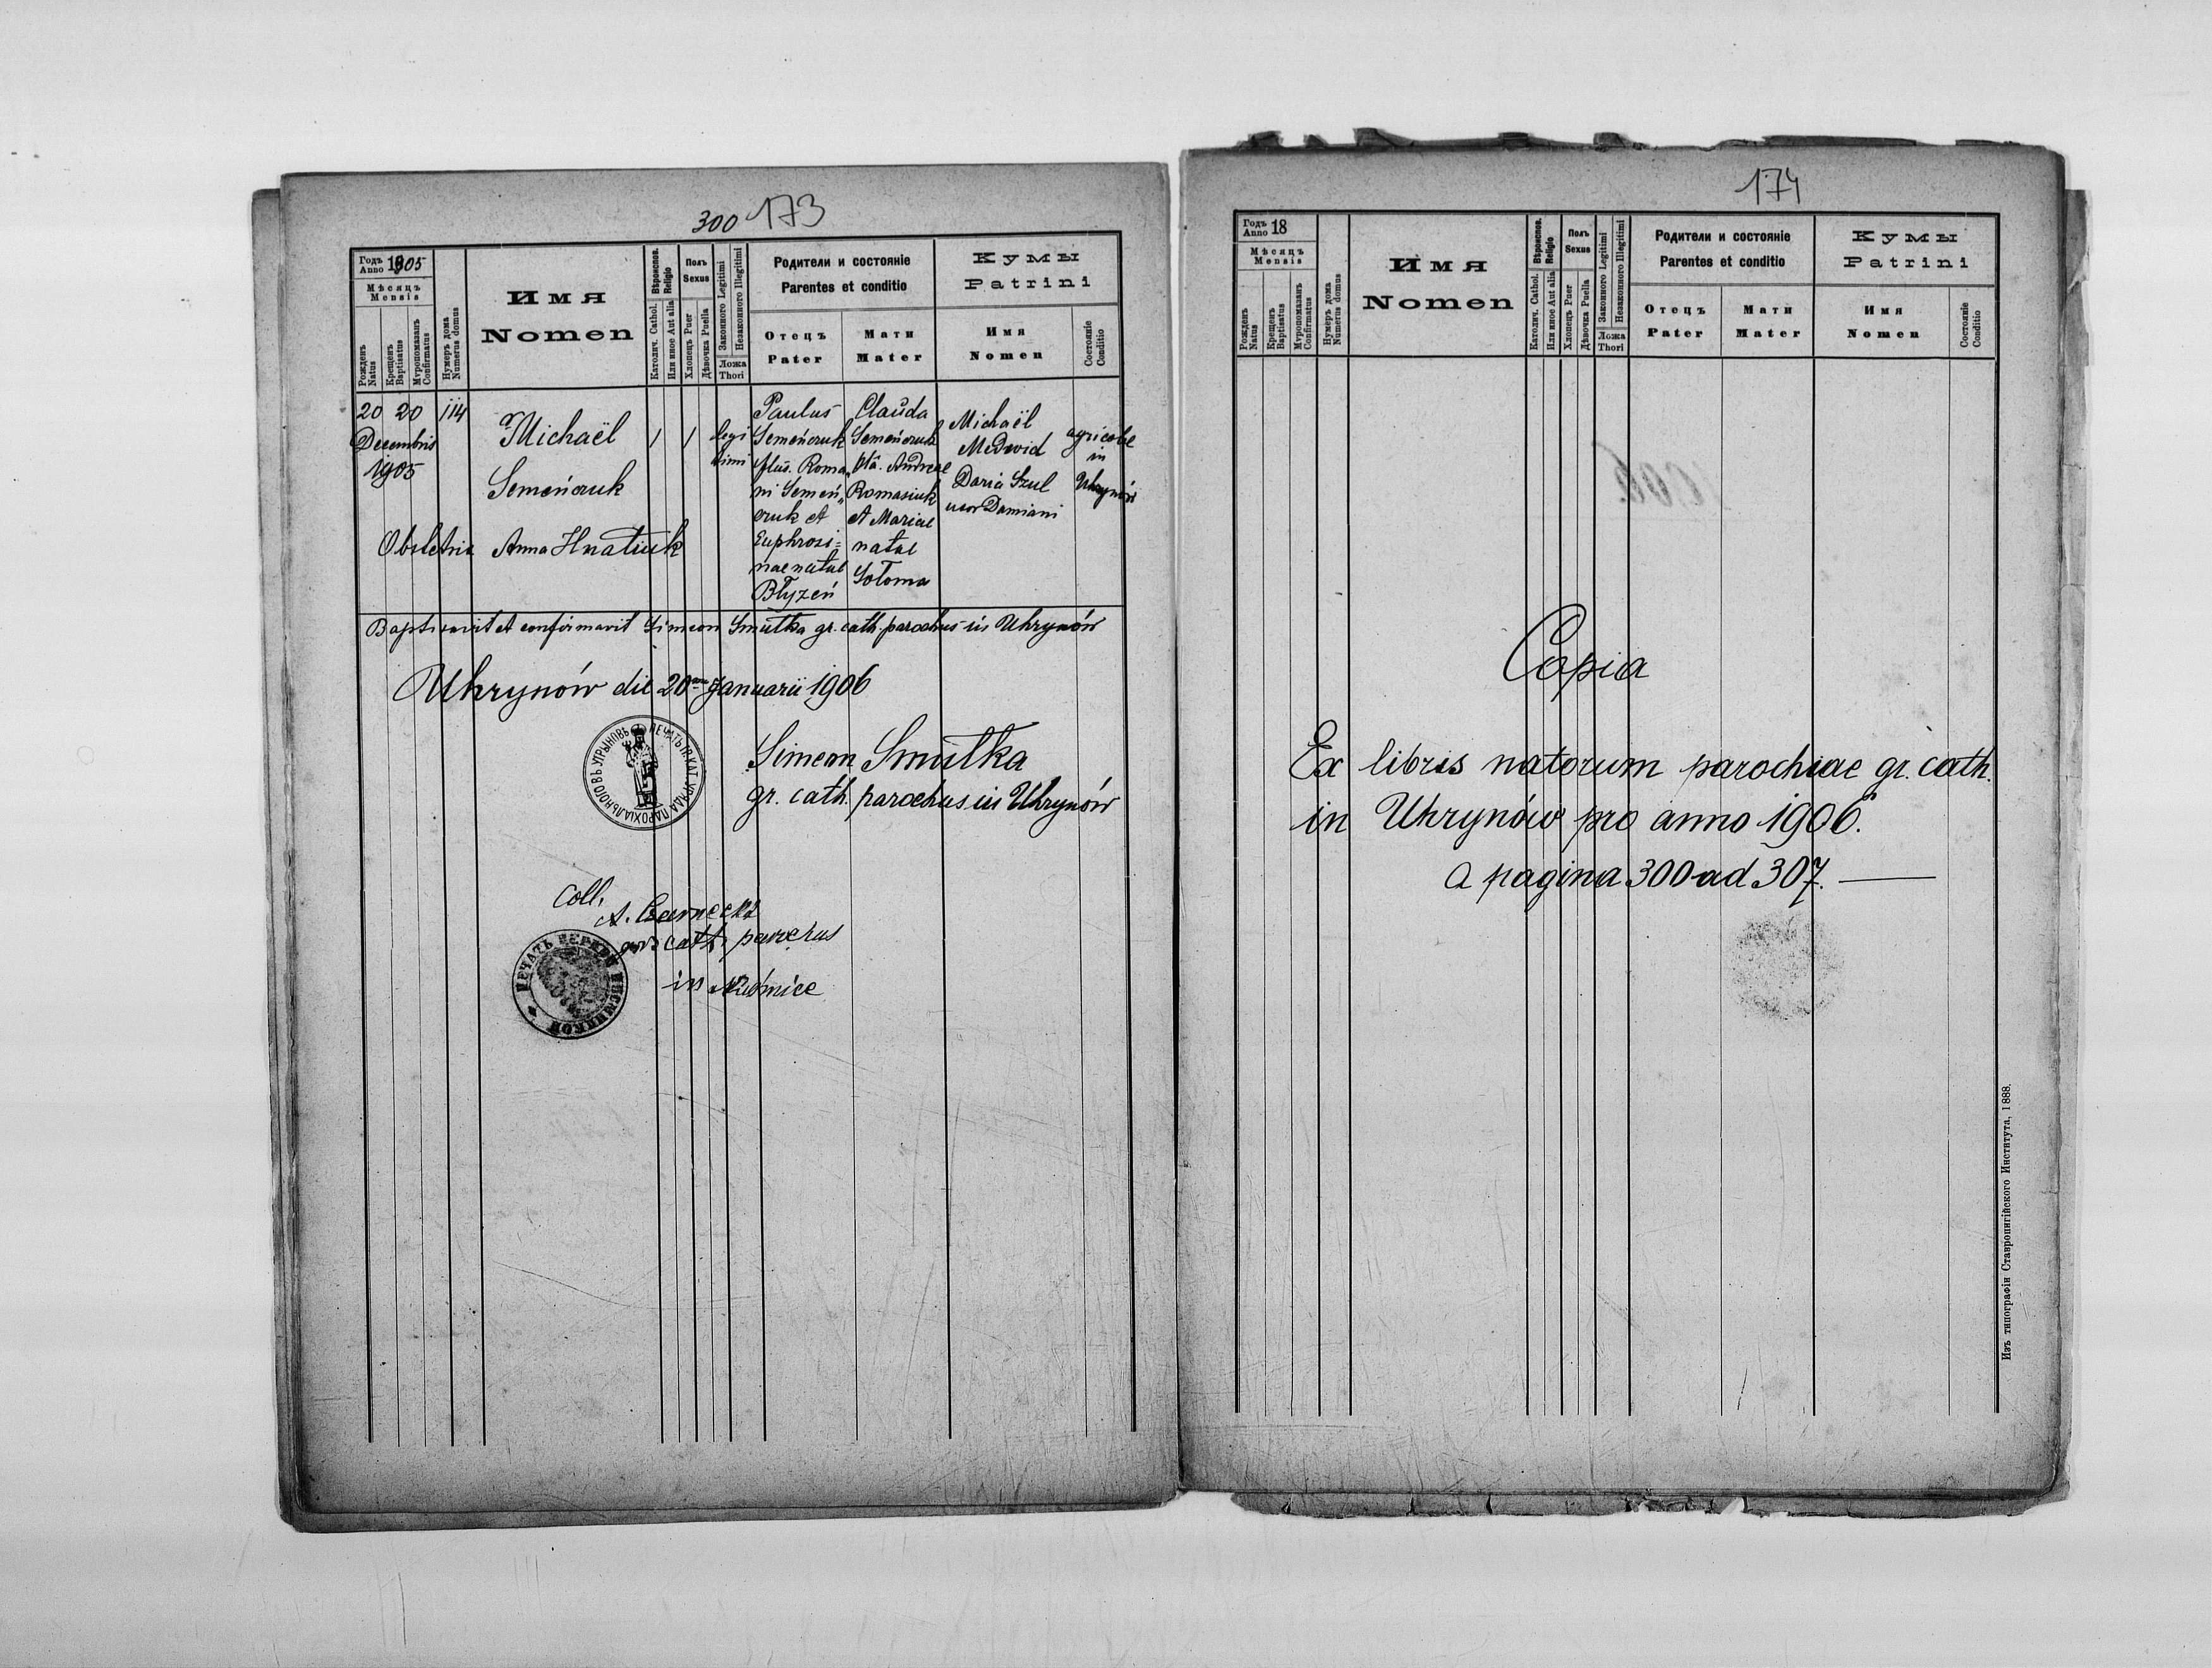 300 173
Годъ Anno 1905
Мѣсяцъ
Mensis
Рожденъ Natus
Крещенъ Baptisatus
Мѵропомазанъ Confirmatus
Нумеръ дома Numerus domus
Имя
Nomen
Вѣроисповѣд. Religio
Католич. Cathol.
Или иное Aut alia
Полъ
Sexus
Хлопецъ Puer
Дѣвочка Puella
Законного Legitimi
Незаконного Illegitimi
Ложа
Thori
Родители и состояніе
Parentes et conditio
Отецъ
Pater
Мати
Mater
Кумы
Patrini
Имя
Nomen
Состояніе
Conditio
20 20 114
Decembris
1905
Michaël
Semeńczuk
1 1
legi
timi
Paulus
Semeńczuk
filius. Roma„
ni Semeń„
czuk et
Euphrosi=
nae natae
Błyzeń
Clauda
Semeńczuk
flia. Andreae
Romasiuk
et Mariae
natae
Sołoma
Michaël
Medwid
Daria Szul
uxor Damiani
agricolae
in
Uhrynów
Obstetrix Anna Hnatiuk
Baptisavit et confirmavit Simeon Smulka gr. cath. parochus in Uhrynów
Uhrynów die 20 Januarii 1906
ПЕЧАТЬ ГР. КАТ. УРЯДА ПАРОХІАЛЬНОГО ВЪ УГРЫНОВѢ
Simeon Smulka
gr. cath. parochus in Uhrynów
Coll.
A. Czarnecki
gr. cath. parochus
in
ПЕЧАТЬ ЦЕРКВИ
174
Годъ Anno 18
Мѣсяцъ
Mensis
Рожденъ Natus
Крещенъ Baptisatus
Мѵропомазанъ Confirmatus
Нумеръ дома Numerus domus
Имя
Nomen
Вѣроисповѣд. Religio
Католич. Cathol.
Или иное Aut alia
Полъ
Sexus
Хлопецъ Puer
Дѣвочка Puella
Законного Legitimi
Незаконного Illegitimi
Ложа
Thori
Родители и состояніе
Parentes et conditio
Отецъ
Pater
Мати
Mater
Кумы
Patrini
Имя
Nomen
Состояніе
Conditio
Copia
Ex libris natorum parochiae gr. cath.
in Uhrynów pro anno 1906.
a pagina 300 ad 307.
Изъ типографіи Ставропигійского Института, 1888.